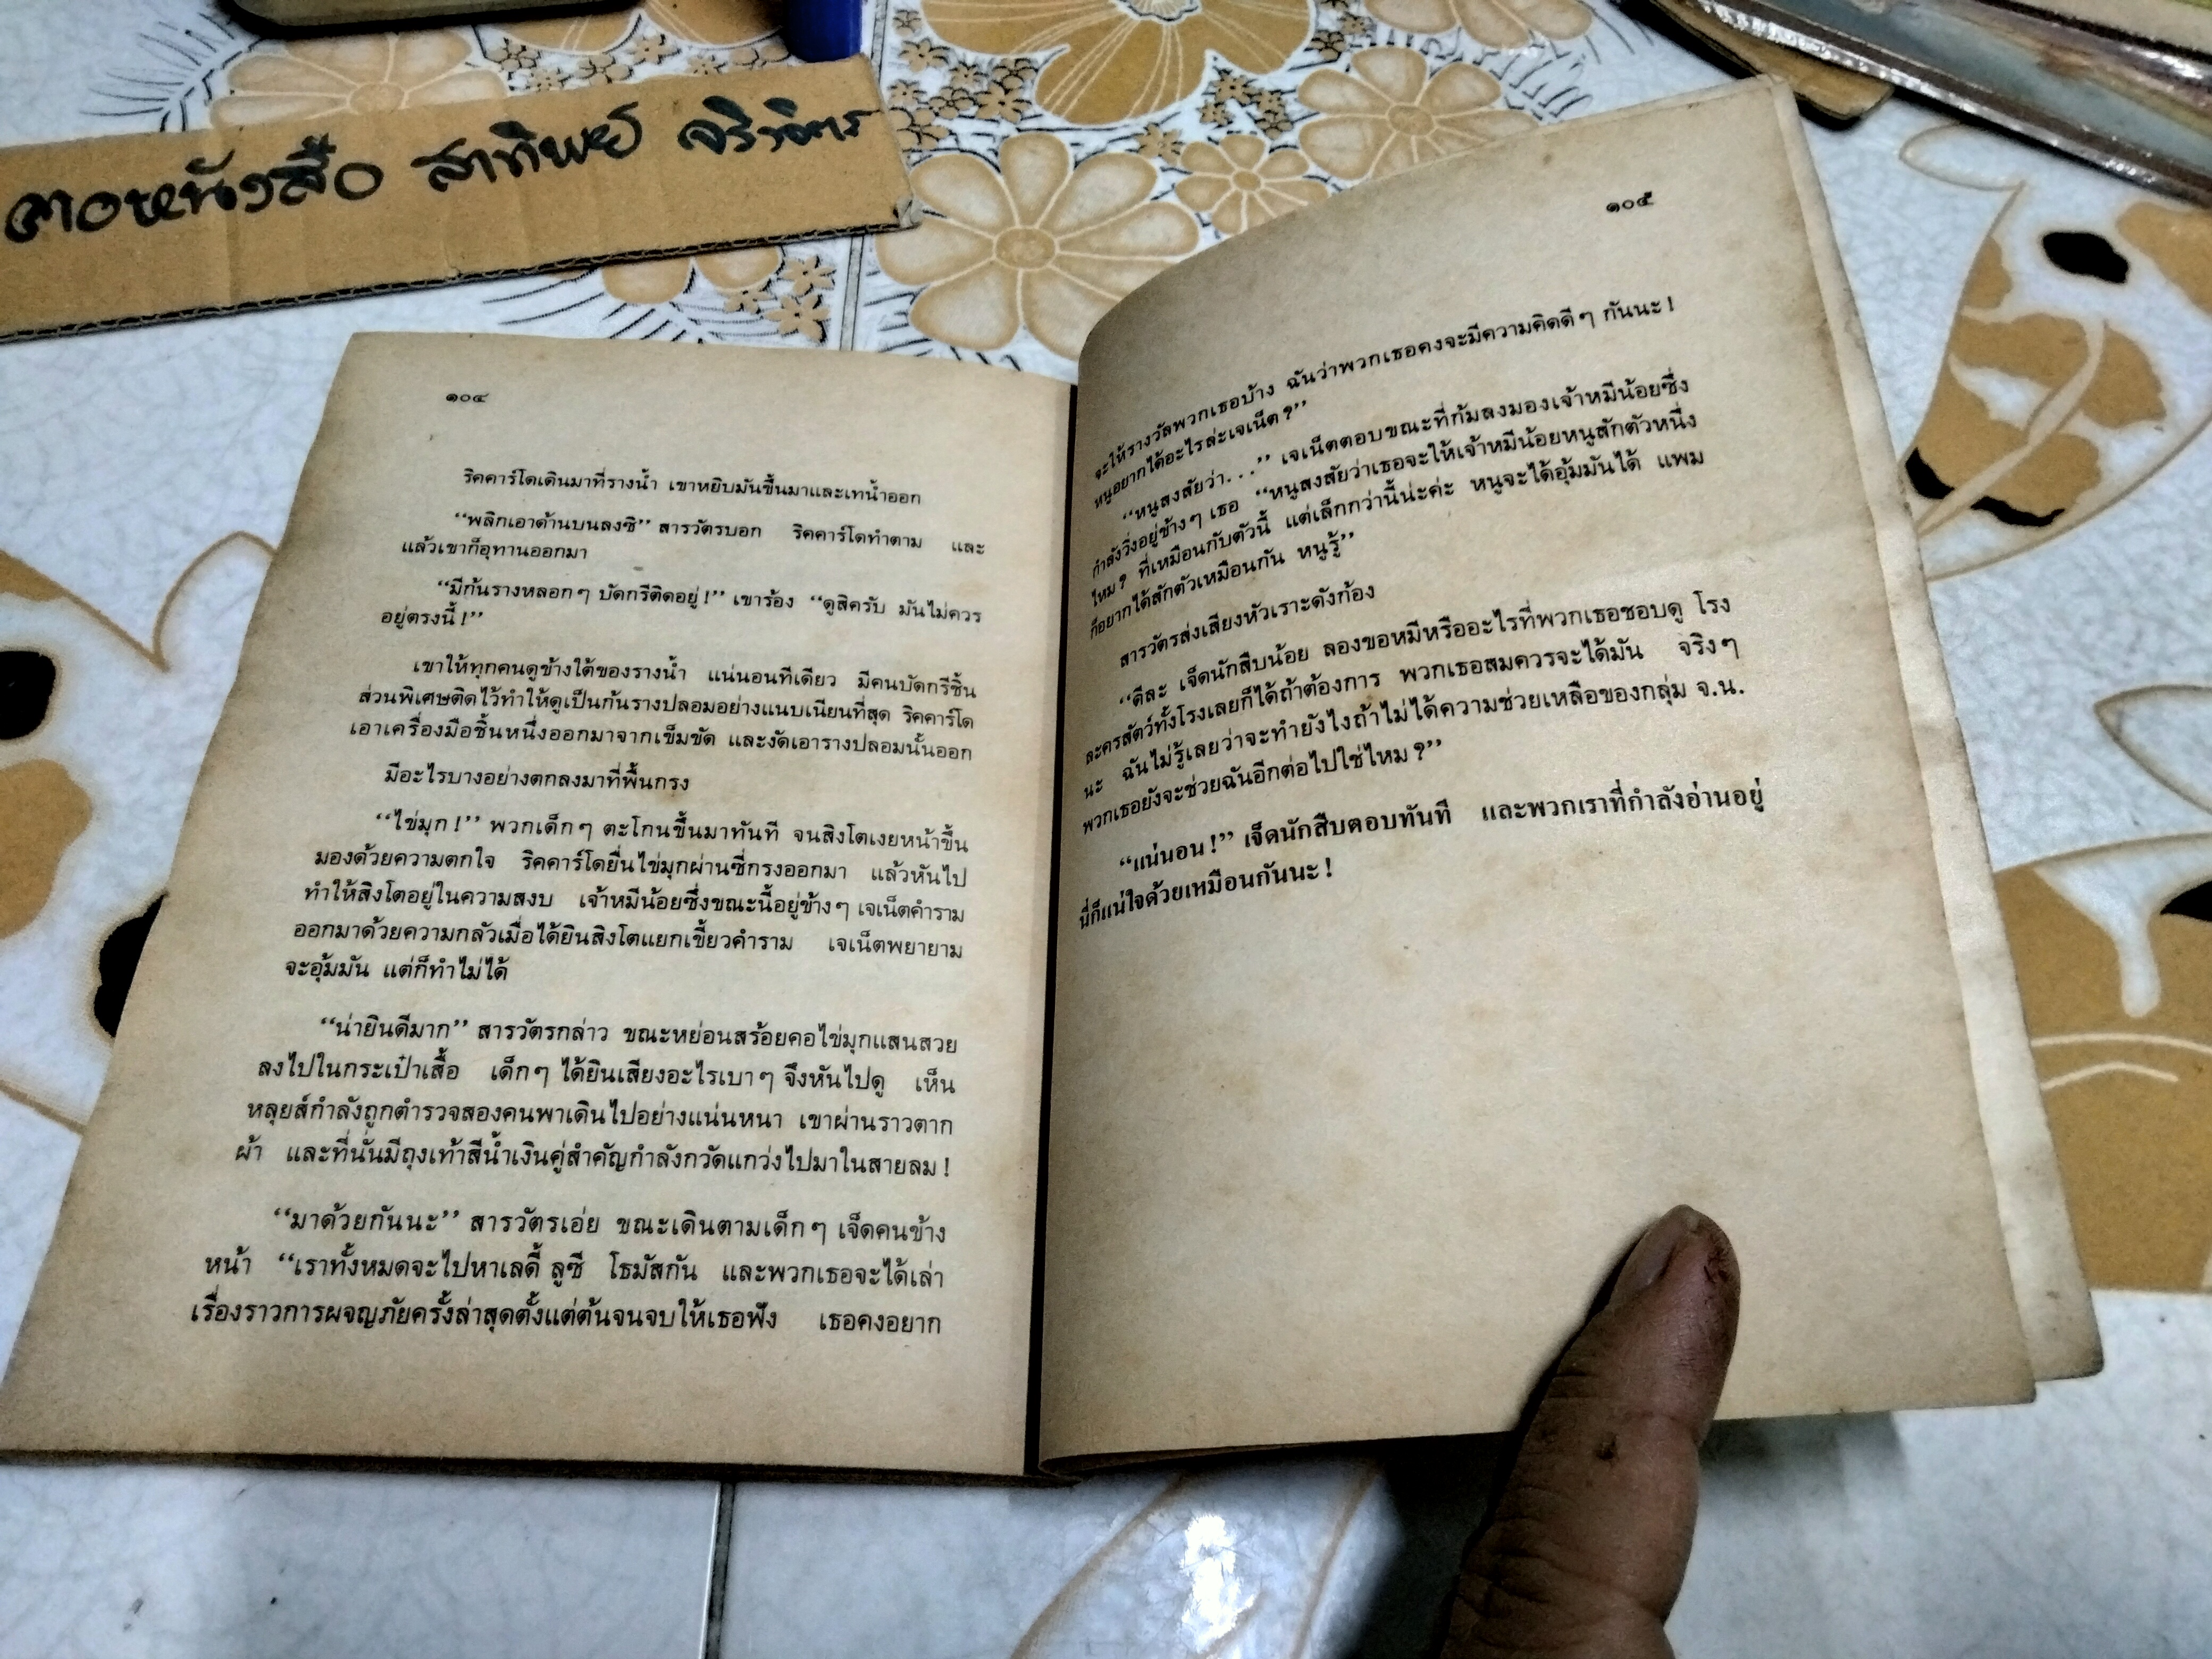 ฅอหนังสือ สาทิพย์ จริงจิตร
๑๐๔
ริคคาร์โดเดินมาที่รางน้ำ เขาหยิบมันขึ้นมาและเทน้ำออก
“พลิกเอาด้านบนลงซิ” สารวัตรบอก ริคคาร์โดทำตาม และ
แล้วเขาก็อุทานออกมา
“มีก้นรางหลอกๆ บัดกรีติดอยู่!” เขาร้อง “ดูสิครับ มันไม่ควร
อยู่ตรงนี้!”
เขาให้ทุกคนดูข้างใต้ของรางน้ำ แน่นอนทีเดียว มีคนบัดกรีชิ้น
ส่วนพิเศษติดไว้ทำให้ดูเป็นก้นรางปลอมอย่างแนบเนียนที่สุด ริคคาร์โด
เอาเครื่องมือชิ้นหนึ่งออกมาจากเข็มขัด และงัดเอารางปลอมนั้นออก
มีอะไรบางอย่างตกลงมาที่พื้นกรง
“ไข่มุก!” พวกเด็กๆ ตะโกนขึ้นมาทันที จนสิงโตเงยหน้าขึ้น
มองด้วยความตกใจ ริคคาร์โดยื่นไข่มุกผ่านซี่กรงออกมา แล้วหันไป
ทำให้สิงโตอยู่ในความสงบ เจ้าหมีน้อยซึ่งขณะนี้อยู่ข้างๆ เจเน็ตคำราม
ออกมาด้วยความกลัวเมื่อได้ยินสิงโตแยกเขี้ยวคำราม เจเน็ตพยายาม
จะอุ้มมัน แต่ก็ทำไม่ได้
“น่ายินดีมาก” สารวัตรกล่าว ขณะหย่อนสร้อยคอไข่มุกแสนสวย
ลงไปในกระเป๋าเสื้อ เด็กๆ ได้ยินเสียงอะไรเบาๆ จึงหันไปดู เห็น
หลุยส์กำลังถูกตำรวจสองคนพาเดินไปอย่างแน่นหนา เขาผ่านราวตาก
ผ้า และที่นั่นมีถุงเท้าสีน้ำเงินคู่สำคัญกำลังกวัดแกว่งไปมาในสายลม!
“มาด้วยกันนะ” สารวัตรเอ่ย ขณะเดินตามเด็กๆ เจ็ดคนข้าง
หน้า “เราทั้งหมดจะไปหาเลดี้ ลูซี โธมัสกัน และพวกเธอจะได้เล่า
เรื่องราวการผจญภัยครั้งล่าสุดตั้งแต่ต้นจนจบให้เธอฟัง เธอคงอยาก
๑๐๕
จะให้รางวัลพวกเธอบ้าง ฉันว่าพวกเธอคงจะมีความคิดดีๆ กันนะ!
หนูอยากได้อะไรล่ะเจเน็ต?”
“หนูสงสัยว่า...” เจเน็ตตอบขณะที่ก้มลงมองเจ้าหมีน้อยซึ่ง
กำลังวิ่งอยู่ข้างๆ เธอ “หนูสงสัยว่าเธอจะให้เจ้าหมีน้อยหนูสักตัวหนึ่ง
ไหม? ที่เหมือนกับตัวนี้ แต่เล็กกว่านี้น่ะค่ะ หนูจะได้อุ้มมันได้ แพม
ก็อยากได้สักตัวเหมือนกัน หนูรู้”
สารวัตรส่งเสียงหัวเราะดังก้อง
“ดีละ เจ็ดนักสืบน้อย ลองขอหมีหรืออะไรที่พวกเธอชอบดู โรง
ละครสัตว์ทั้งโรงเลยก็ได้ถ้าต้องการ พวกเธอสมควรจะได้มัน จริงๆ
นะ ฉันไม่รู้เลยว่าจะทำยังไงถ้าไม่ได้ความช่วยเหลือของกลุ่ม จ.น.
พวกเธอยังจะช่วยฉันอีกต่อไปใช่ไหม?”
“แน่นอน!” เจ็ดนักสืบตอบทันที และพวกเราที่กำลังอ่านอยู่
นี่ก็แน่ใจด้วยเหมือนกันนะ!